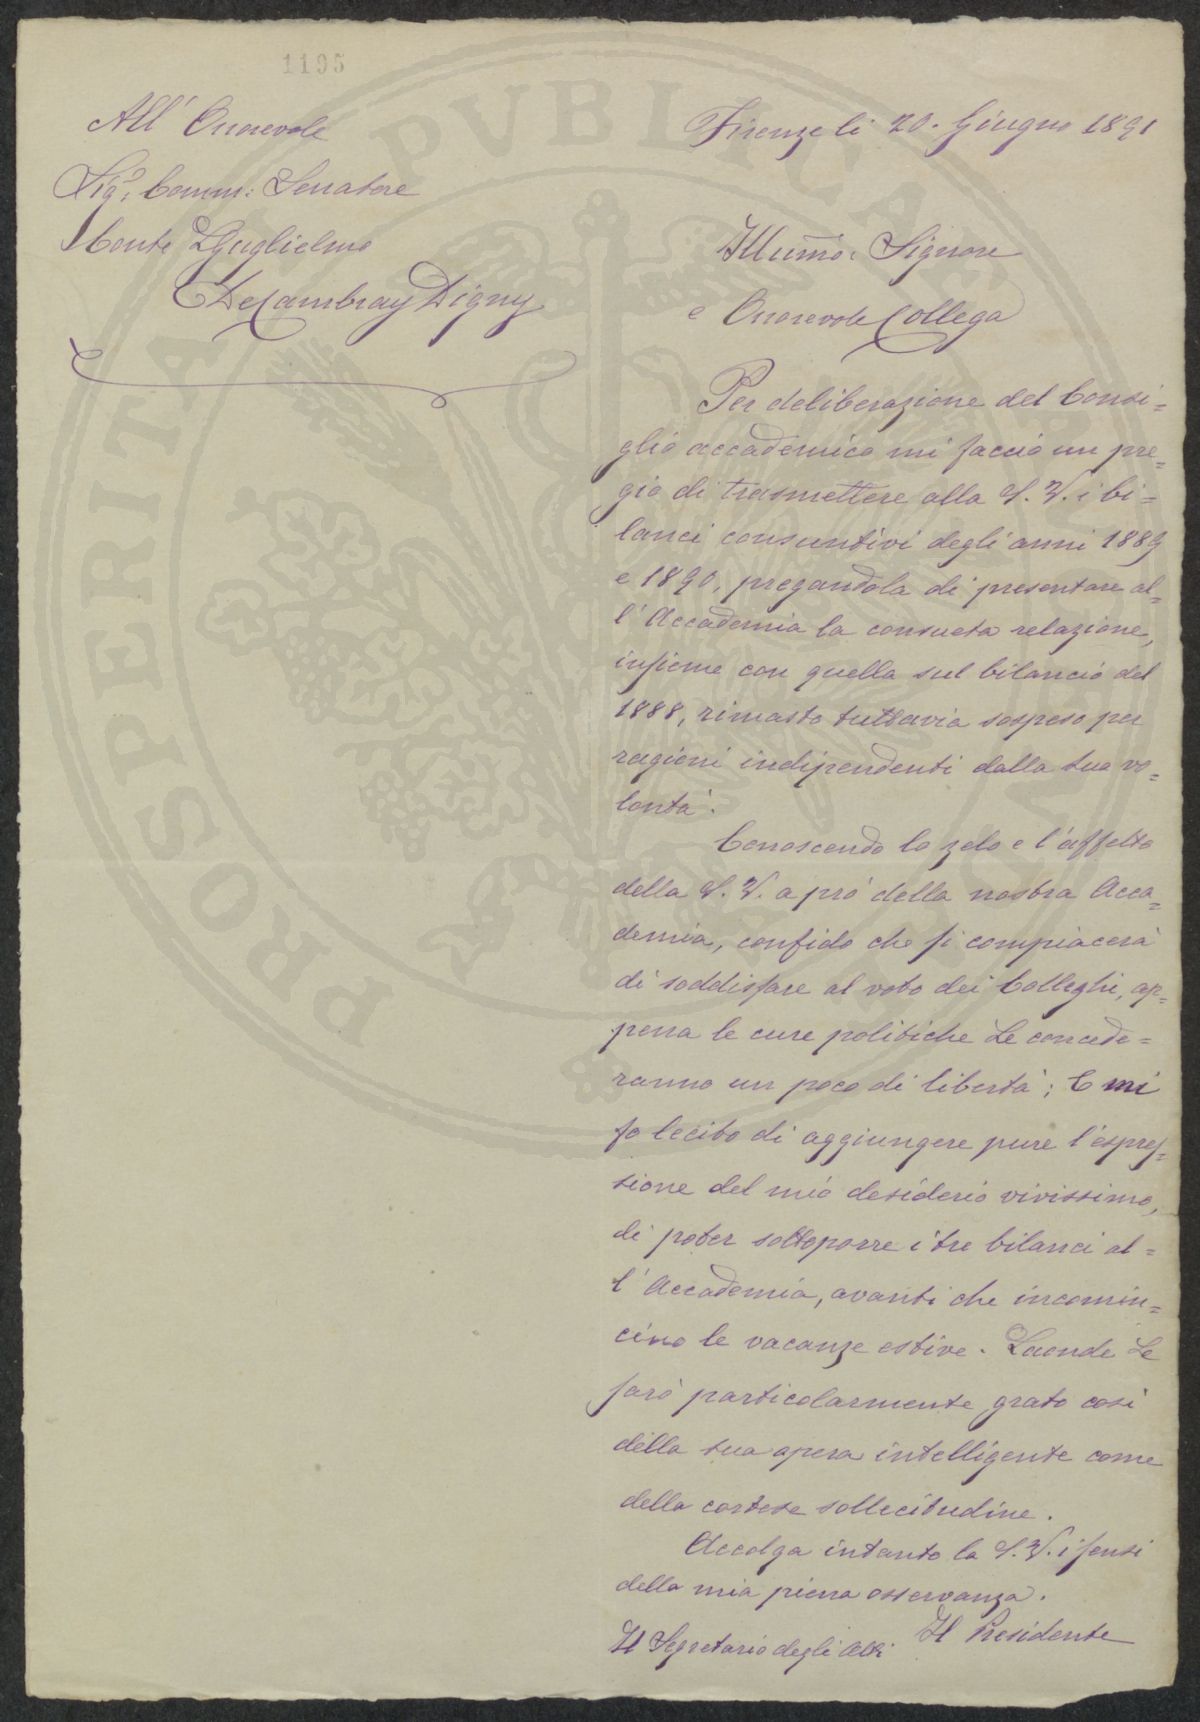 1195
All' Onorevole
Sigr. Comm: Senatore
Conte Guglielmo
De Cambray Digny
Firenze li 20. Giugno 1891
Illumo. Signore
e Onorevole Collega
Per deliberazione del Consi=
glio accademico mi faccio un pre=
gio di trasmettere alla S. V. i bi=
lanci consuntivi degli anni 1889
e 1890, pregandola di presentare al=
l'Accademia la consueta relazione,
insieme con quella sul bilancio del
1888, rimasto tuttavia sospeso per
ragioni indipendenti dalla sua vo=
lontà.
Conoscendo lo zelo e l'affetto
della S. V. a pro' della nostra Acca=
demia, confido che si compiacerà
di soddisfare al voto dei Colleghi, ap=
pena le cure politiche Le concede=
ranno un poco di libertà; E mi
fo lecito di aggiungere pure l'espres=
sione del mio desiderio vivissimo,
di poter sottoporre i tre bilanci al=
l'Accademia, avanti che incomin=
cino le vacanze estive. Laonde Le
sarò particolarmente grato così
della sua opera intelligente come
della cortese sollecitudine.
Accolga intanto la S. V. i sensi
della mia piena osservanza.
Il Segretario degli Atti
Il Presidente
PROSPERITATI PVBLICAE